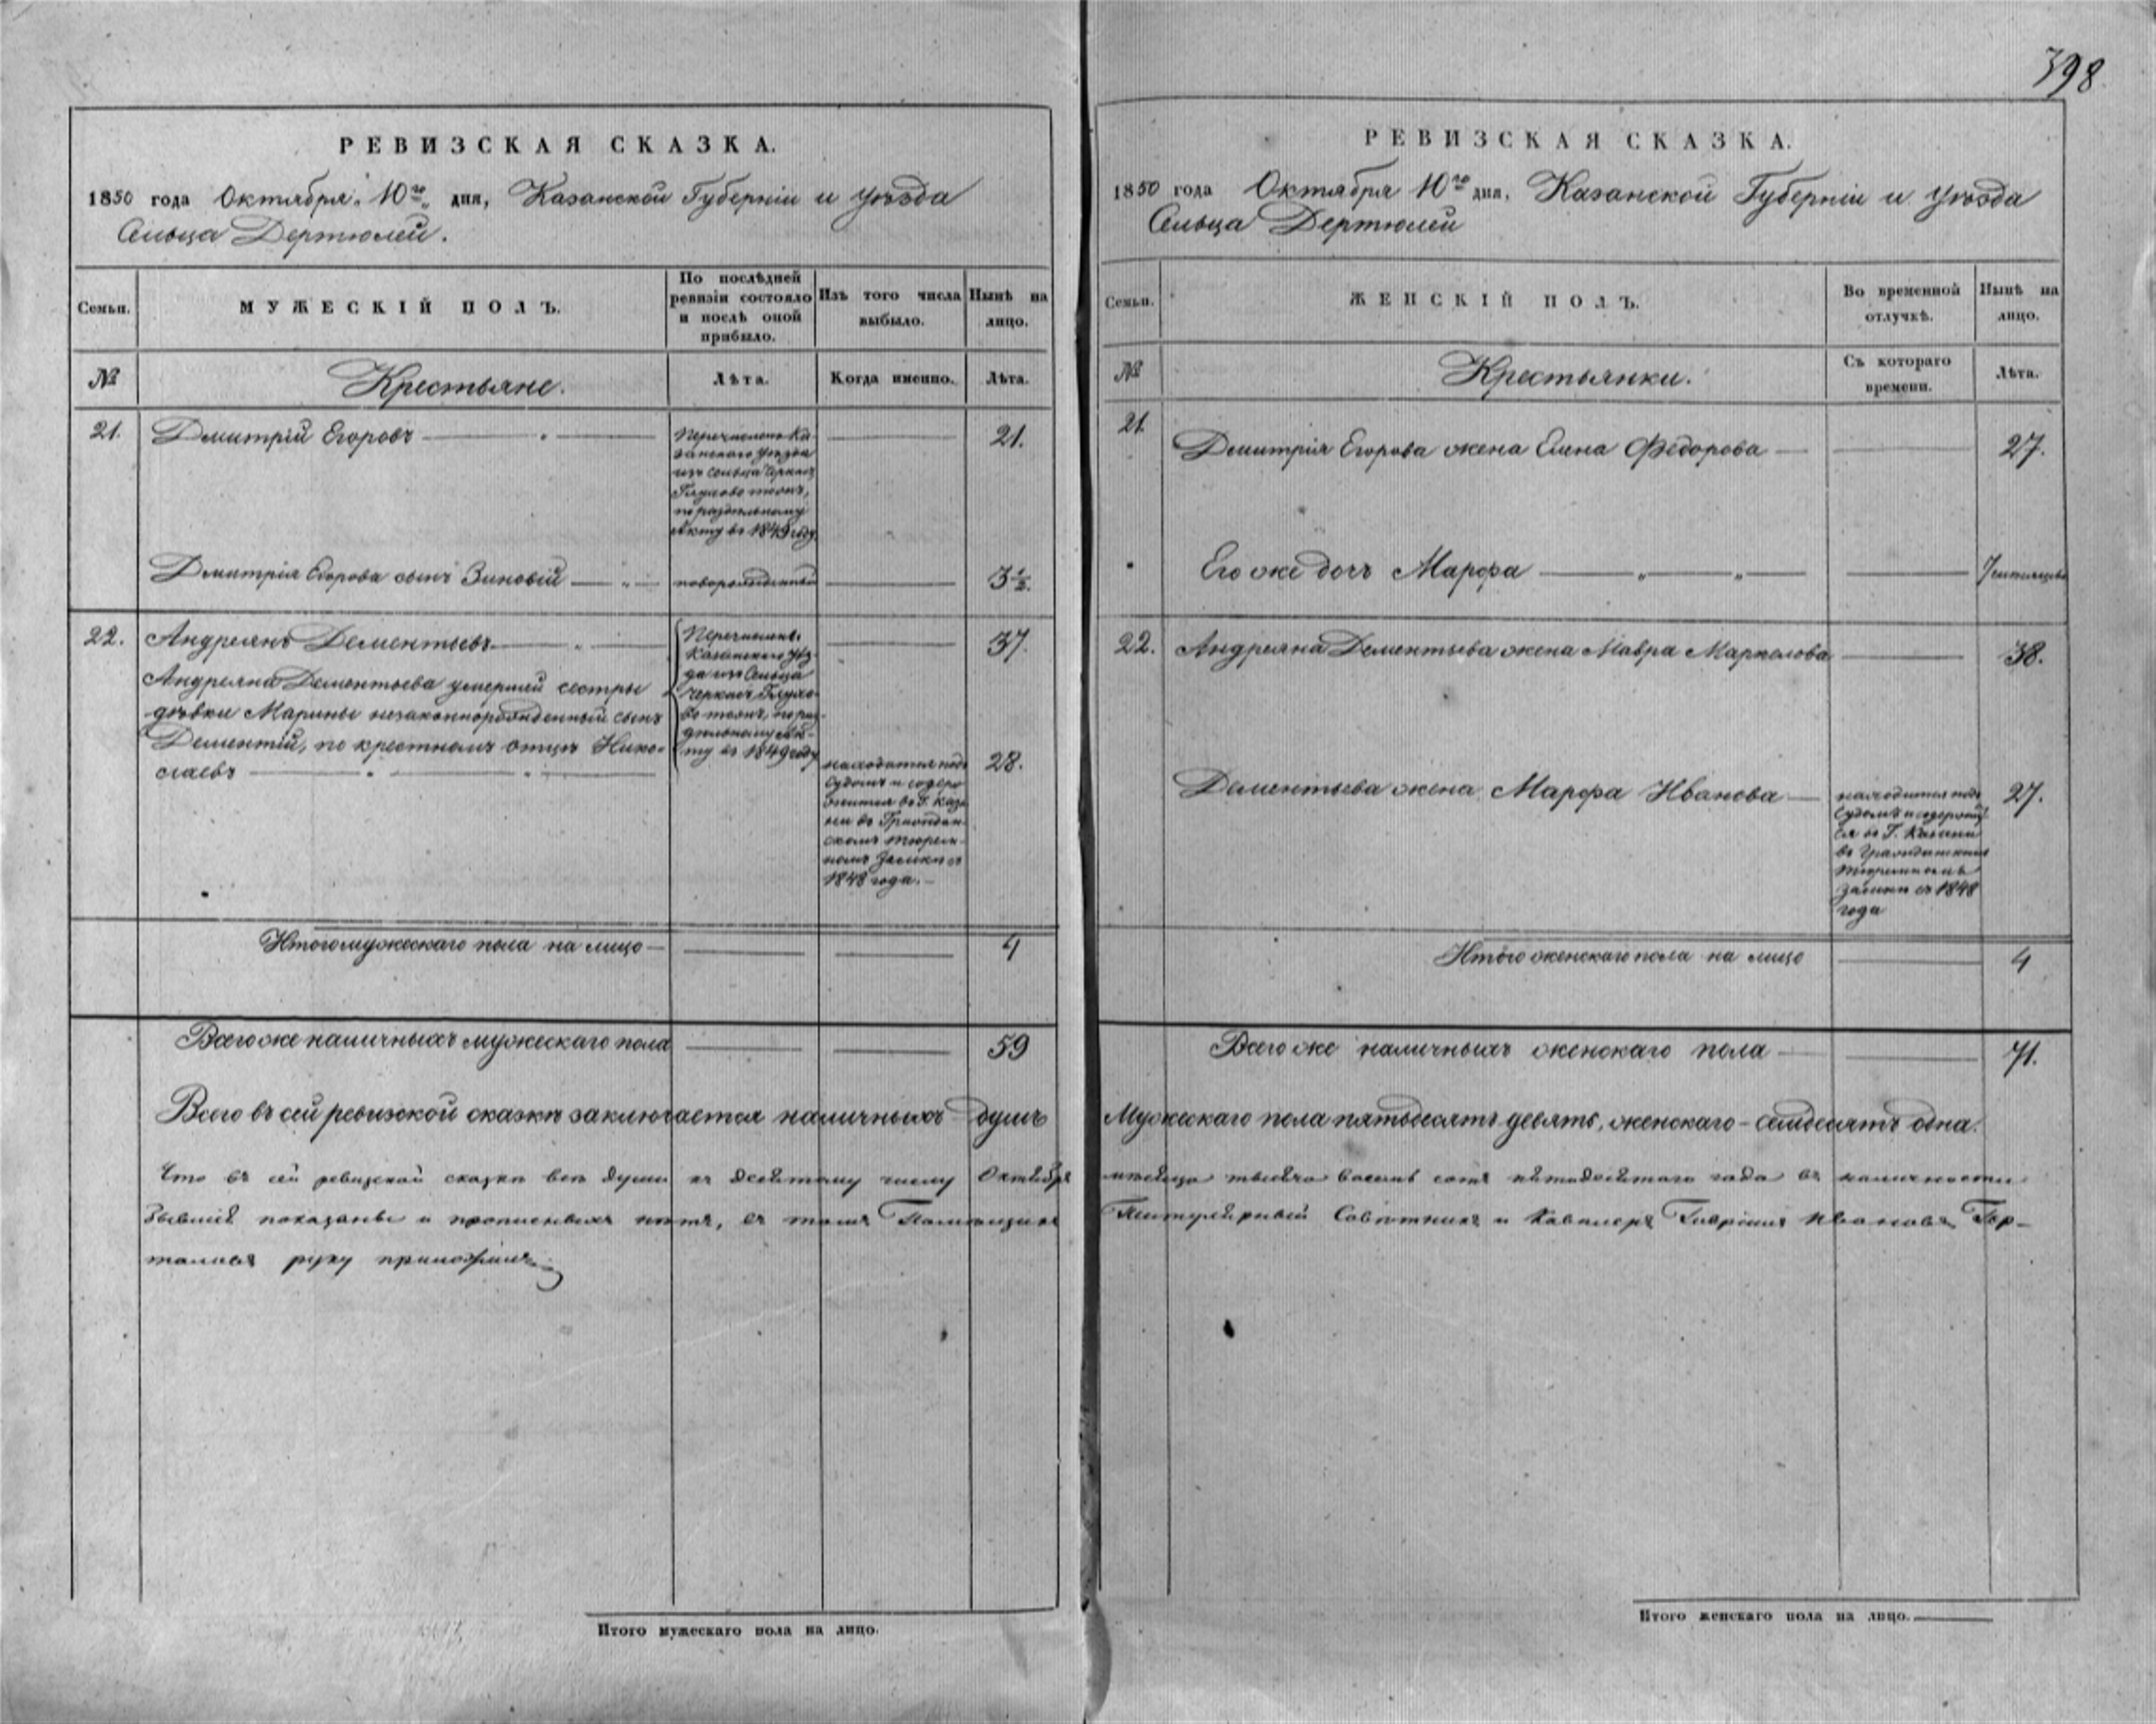 398
РЕВИЗСКАЯ СКАЗКА.
1850 года Октября 10го дня, Казанской Губерніи и уѣзда
Сельца Дертюлей.
Семьи.
МУЖЕСКІЙ ПОЛЪ.
По послѣдней
ревизіи состояло
и послѣ оной
прибыло.
Изъ того числа
выбыло.
Нынѣ на
лицо.
№
Крестьяне.
Лѣта.
Когда именно.
Лѣта.
21.
Дмитрій Егоровъ
Перечисленъ Ка-
занскаго уѣзда
изъ сельца Черкасъ
по раздѣльному
Акту въ 1849 году
21.
Дмитрія Егорова сынъ Зиновій
новорожденный
3½.
22.
Андреянъ Дементьевъ
Перечислены
Казанскаго уѣз-
да изъ Сельца
ту въ 1849 году
37.
Андреяна Дементьева умершей сестры
дѣвки Марины незаконнорожденный сынъ
Дементій, по крестномъ отцѣ Нико-
лаевъ
находится подъ
судомъ и содер-
жится въ Г. Каза-
ни въ Граждан-
скомъ тюрем-
номъ Замкѣ съ
1848 года.
28.
Итого мужескаго пола на лицо
4
Всего же наличныхъ мужескаго пола
59
Всего въ сей ревизской сказкѣ заключается наличныхъ душъ
Что въ сей ревизской сказкѣ всѣ души къ десятому числу Октября
показаны и прописныхъ нѣтъ, въ томъ
руку приложилъ
Итого мужескаго пола на лицо.
РЕВИЗСКАЯ СКАЗКА.
1850 года Октября 10го дня, Казанской Губерніи и уѣзда
Сельца Дертюлей
Семьи.
ЖЕНСКІЙ ПОЛЪ.
Во временной
отлучкѣ.
Нынѣ на
лицо.
№
Крестьянки.
Съ котораго
времени.
Лѣта.
21.
Дмитрія Егорова жена Елена Федорова
27.
Его же дочь Марфа
22.
Андреяна Дементьева жена Мавра Маркелова
38.
Дементьева жена Марфа Иванова
находится подъ
судомъ и содержит-
ся въ Г. Казани
въ Гражданскомъ
тюремномъ
замкѣ съ 1848
года
27.
Итого женскаго пола на лицо
4
Всего же наличныхъ женскаго пола
71.
Мужескаго пола пятьдесятъ девять, женскаго - семдесятъ одна.
мѣсяца тысяча восемь сотъ пятидесятаго года въ наличности
Титулярный Совѣтникъ и Кавалеръ Гавріилъ Ивановъ
Итого женскаго пола на лицо.